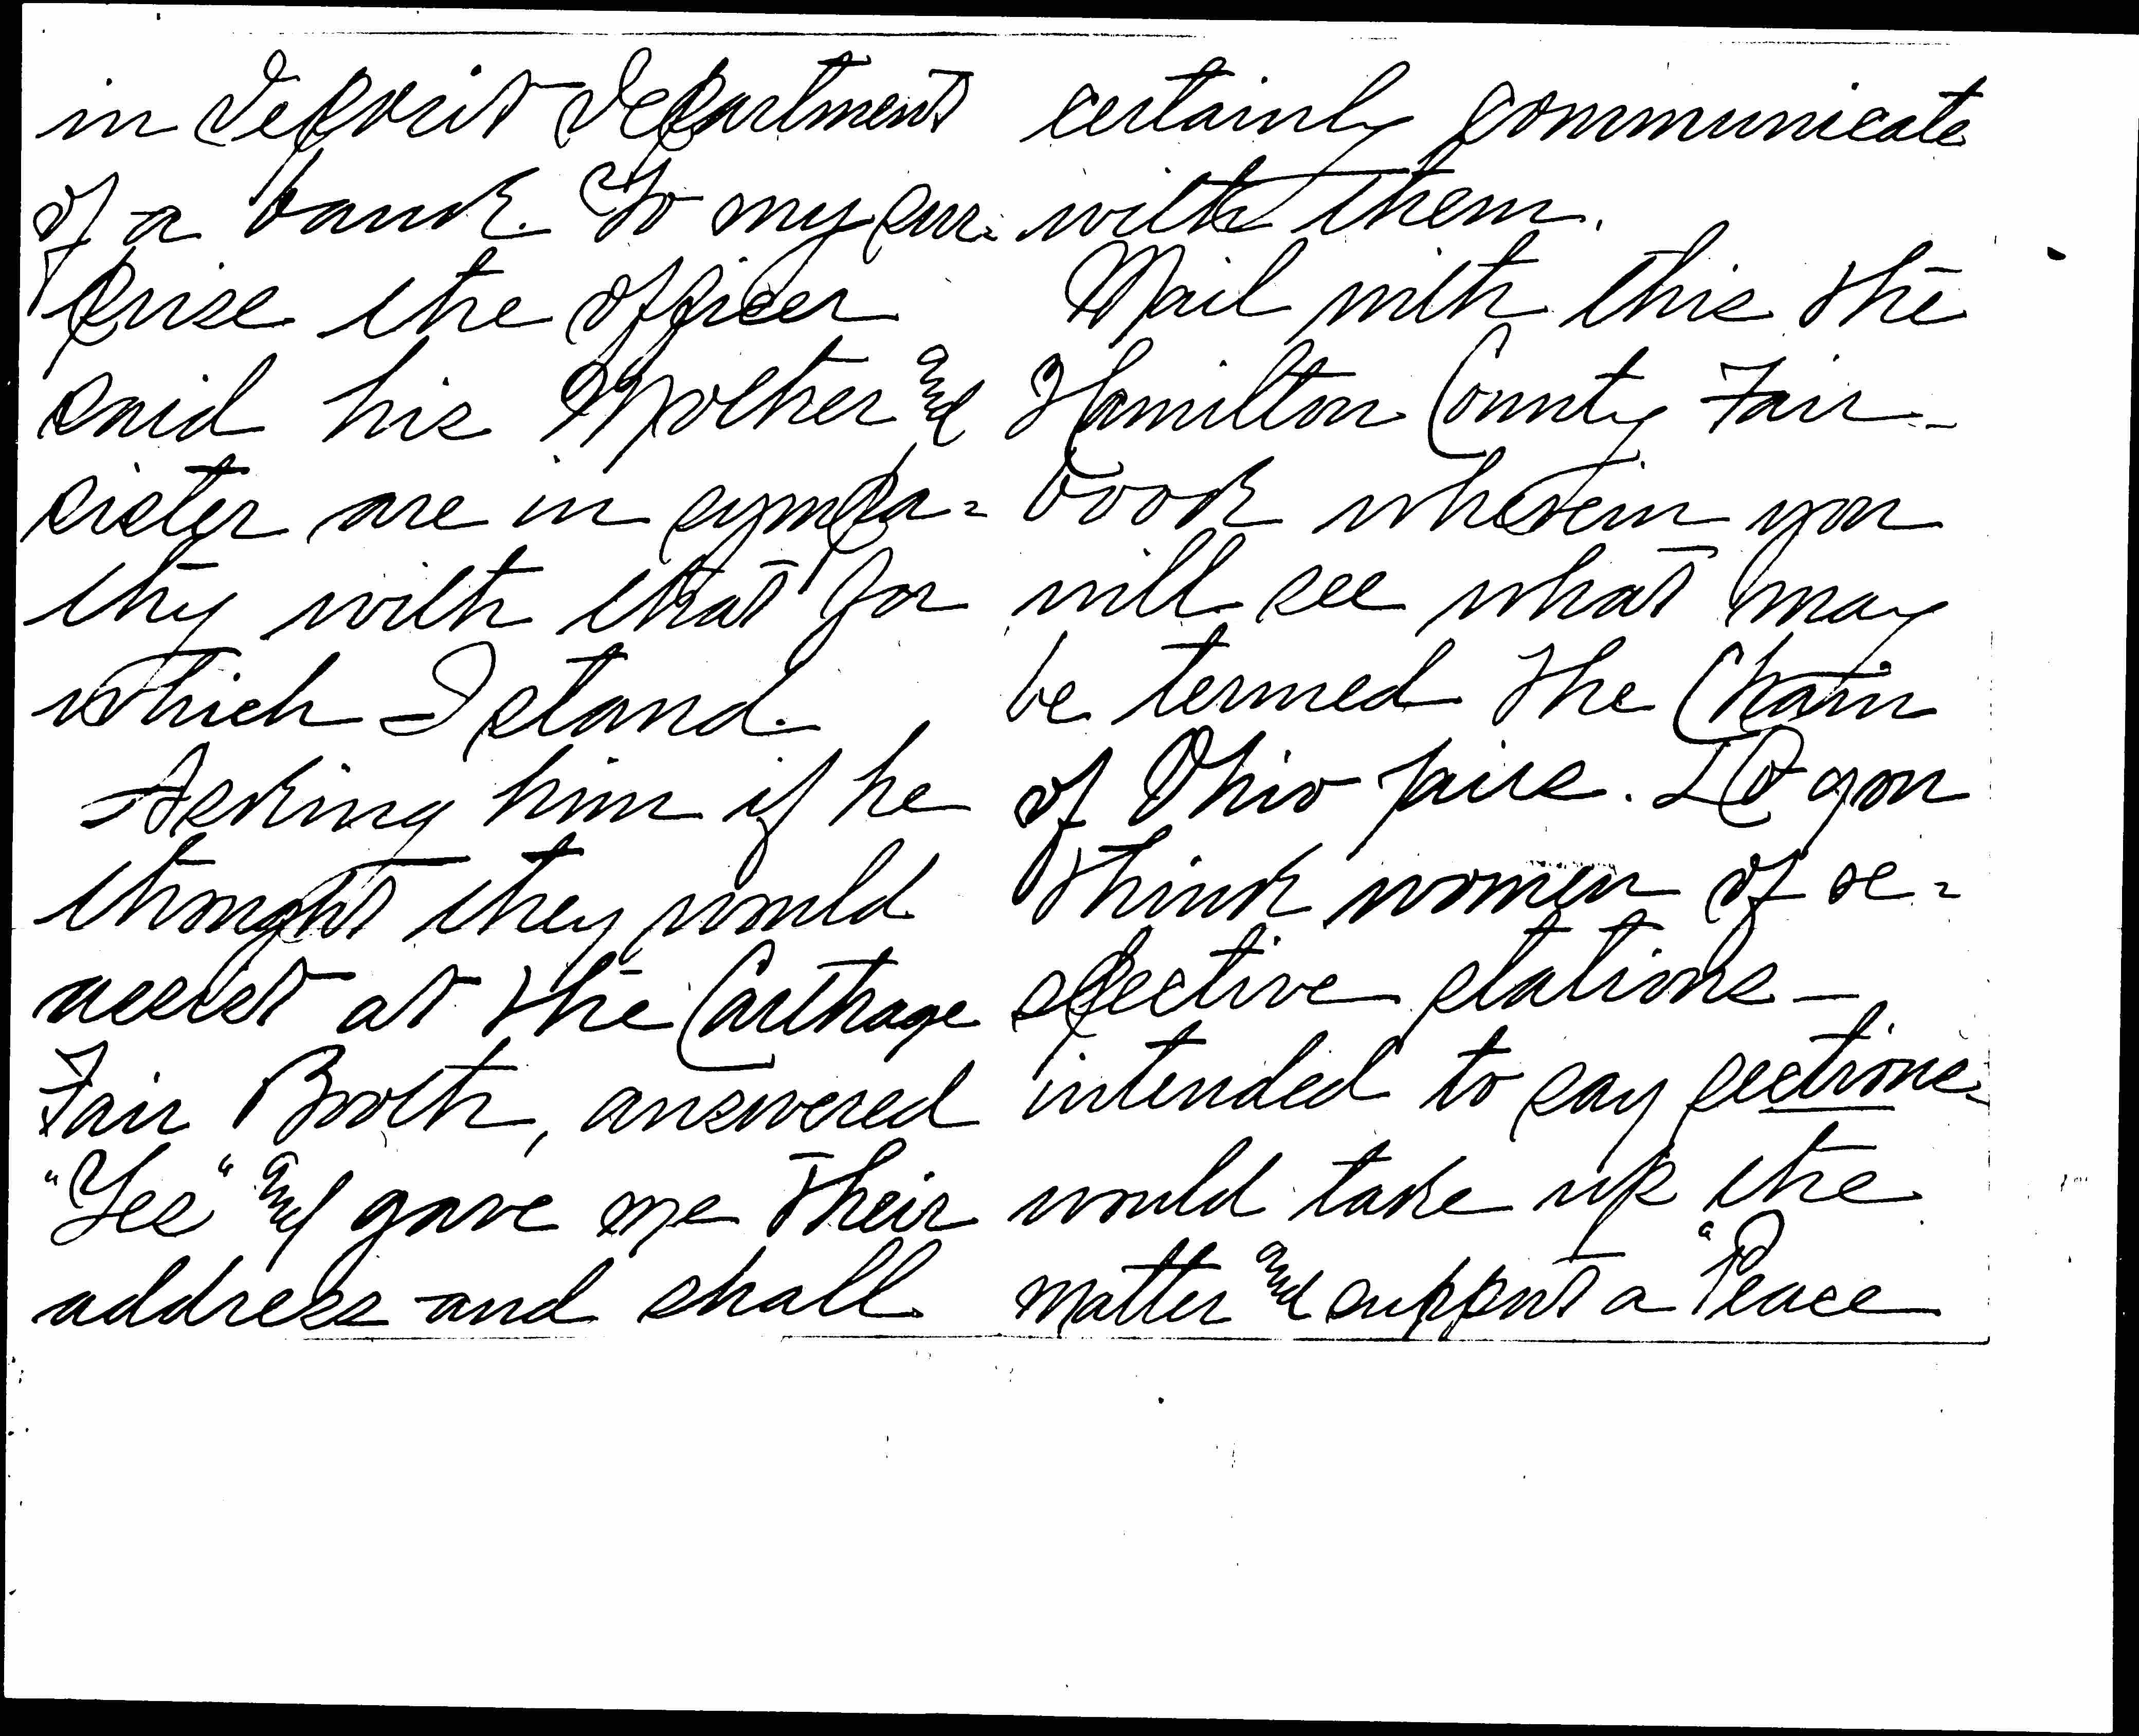 in deposit department
of a bank. To my sur=
prise the officer
said his Mother and
sister are in sympa=
thy with that for
which I stand.
Asking him if he
thought they would
assist at the Carthage
Fair Booth, answered
"Yes" and gave me their
address and shall
certainly communicate
with them.
Mail with this the
Hamilton County Fair-
book wherein you
will see what may
be termed the Chain
of Ohio fairs. Do you
think women of re=
spective stations —
intended to say sections
would take up the
matter and support a "Peace